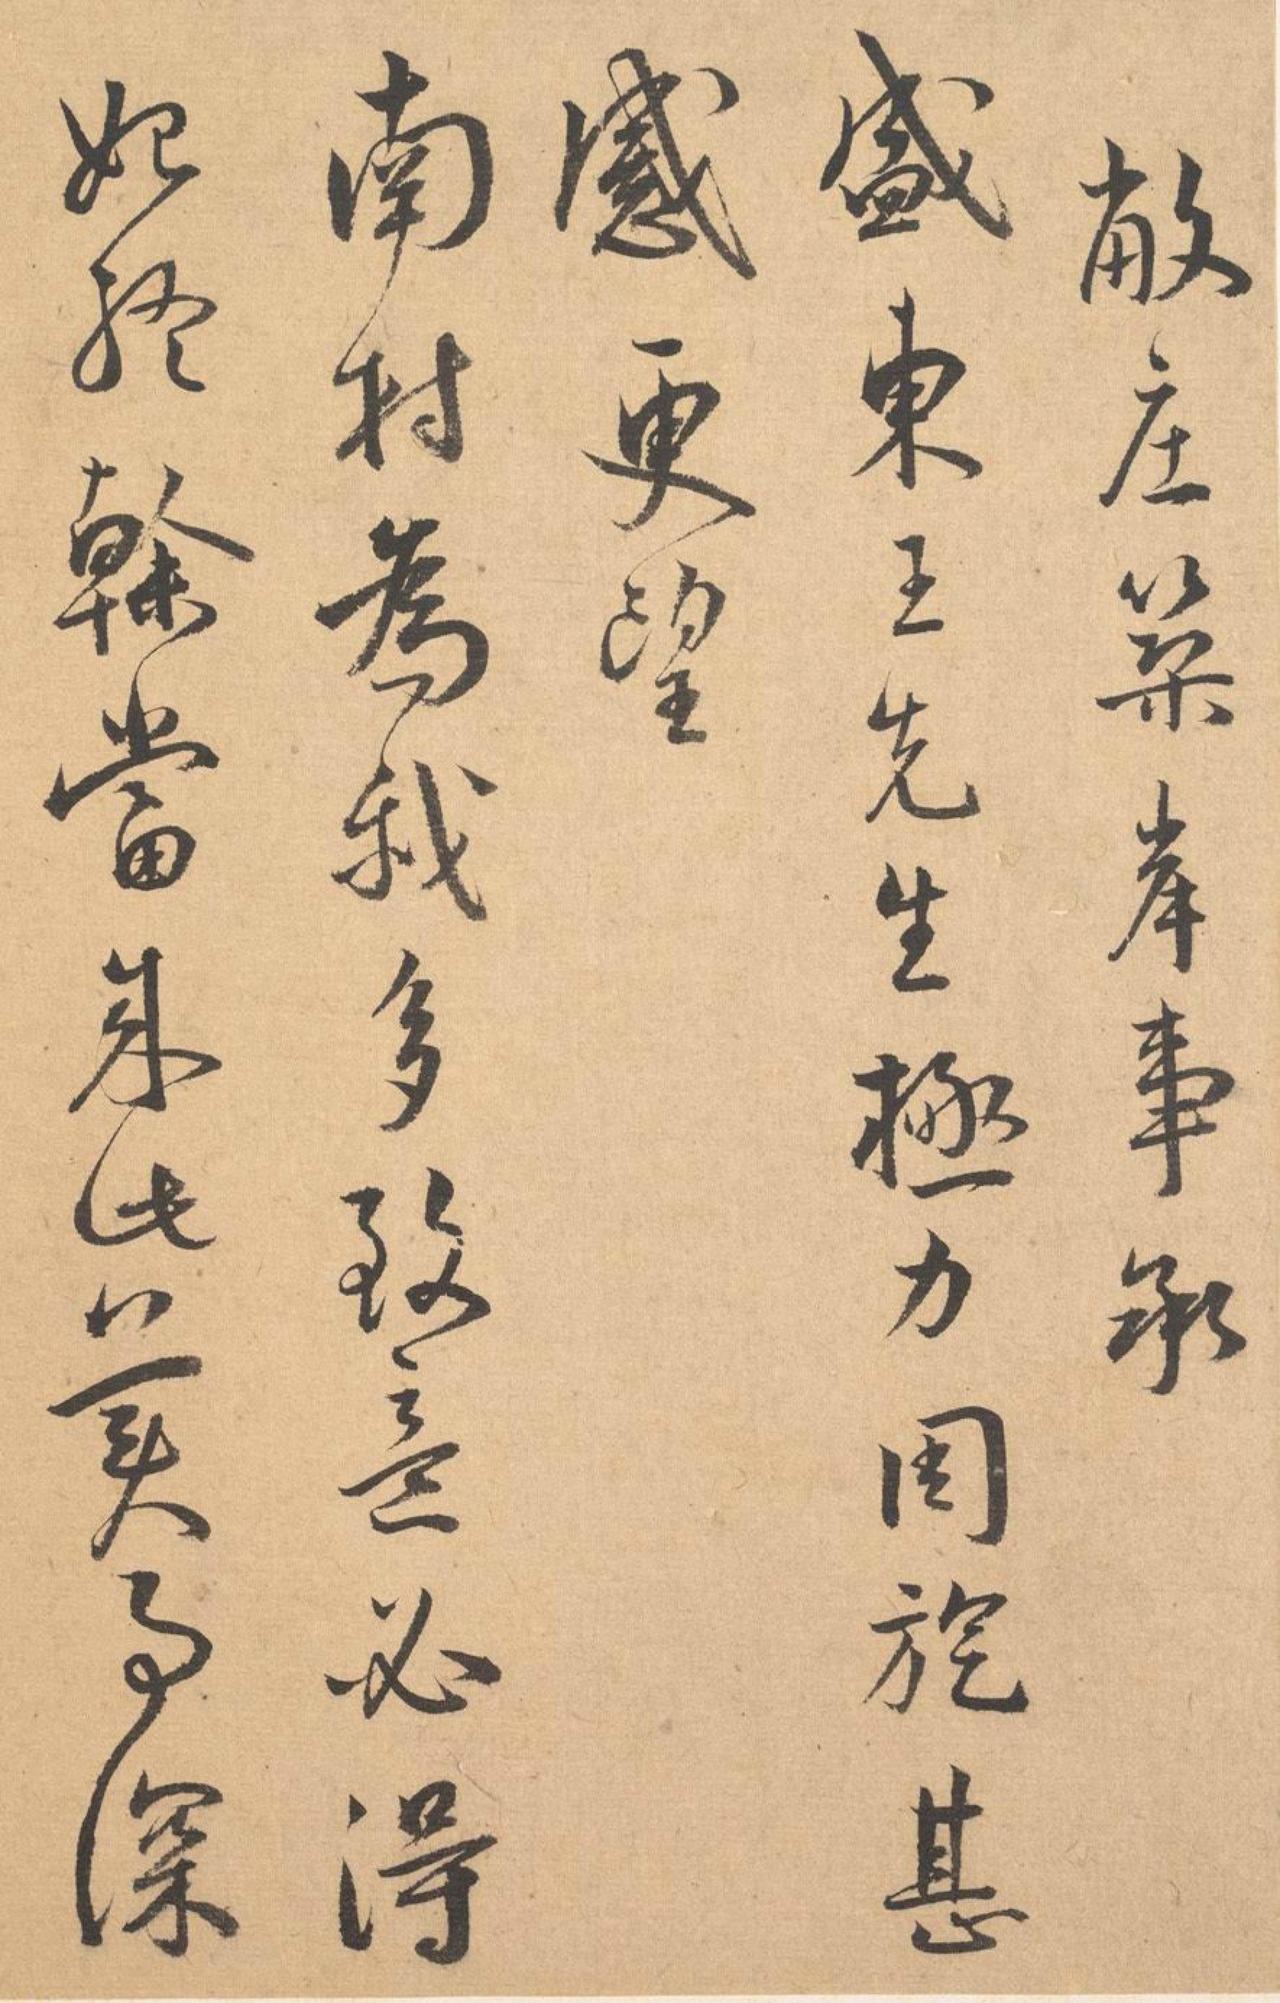 敝庄築岸事承
盛東王先生極力周旋甚
感更望
南村為我多致意必得
始終幹當成此美事深